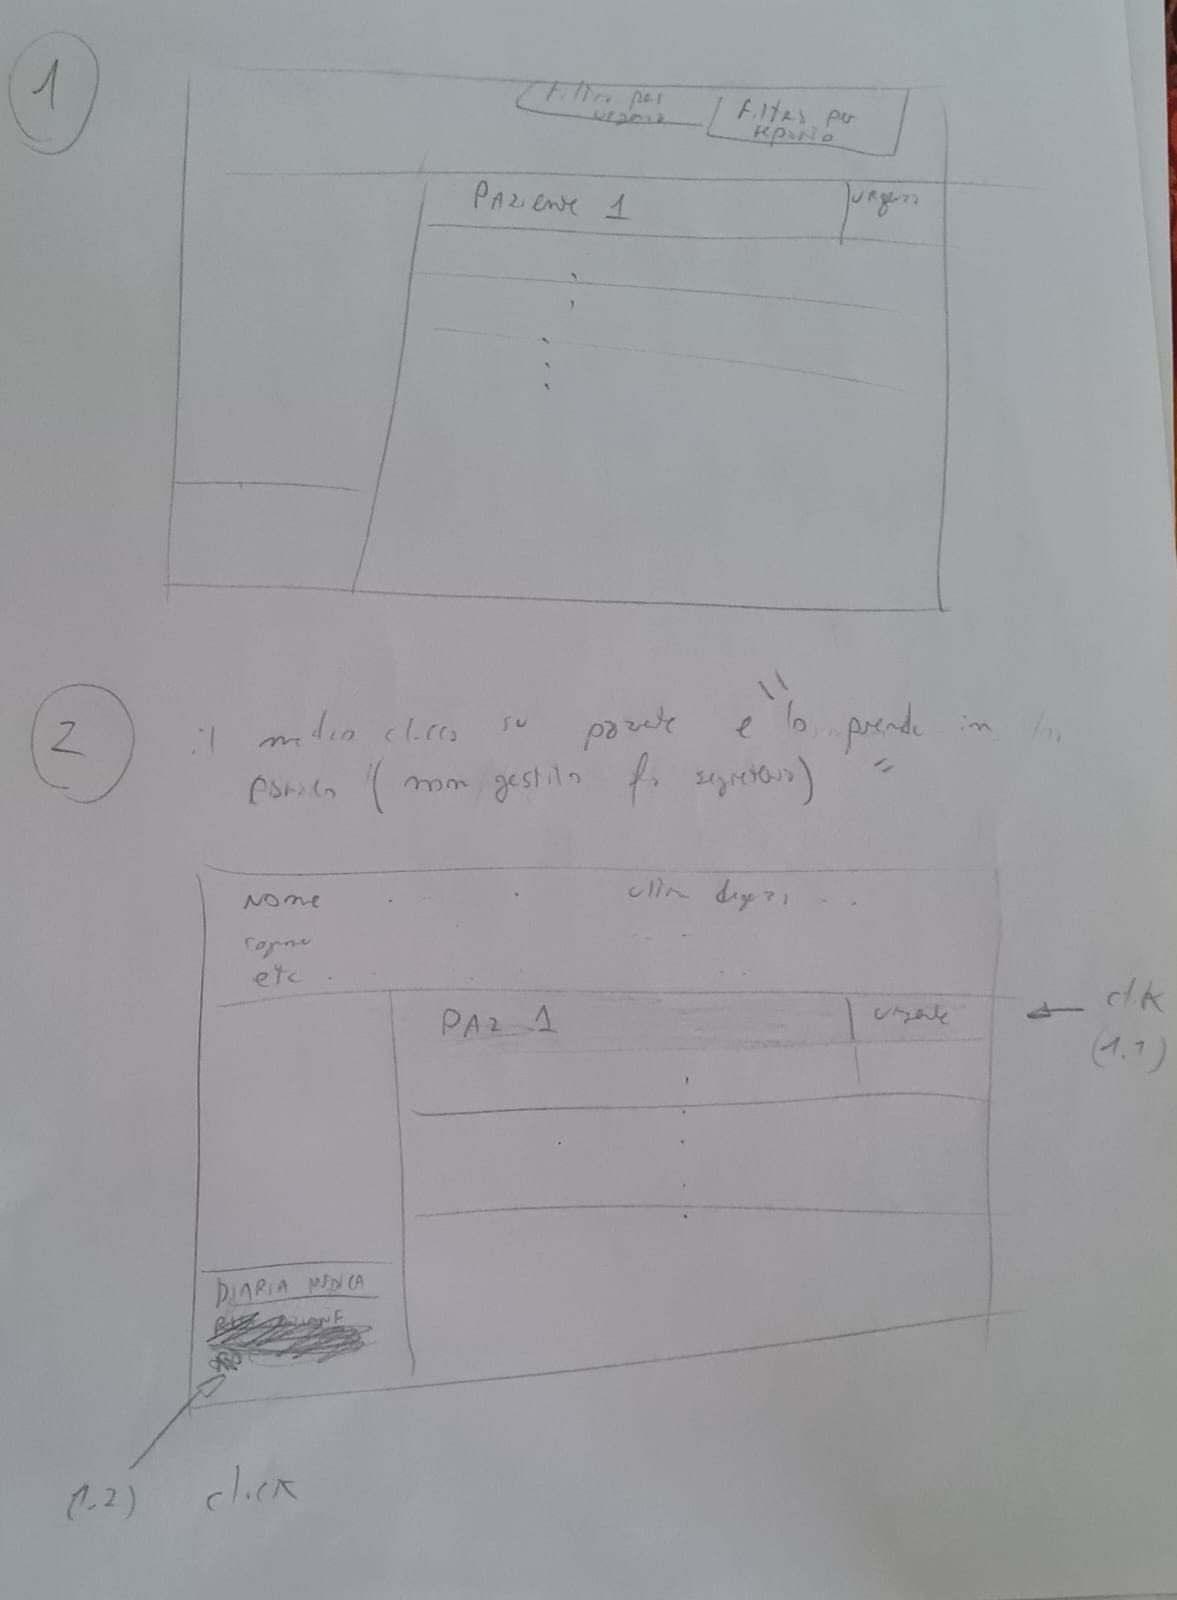 1
Filtra per
urgenza
Filtra per
reparto
Paziente 1
urgenza
2
il medico clicca su paziente e "lo prende in
carico" (non gestito da segretario)
Nome
cogno
etc
PAZ 1
urgente
click
(1.1)
DIARIA MEDICA
(1.2) click